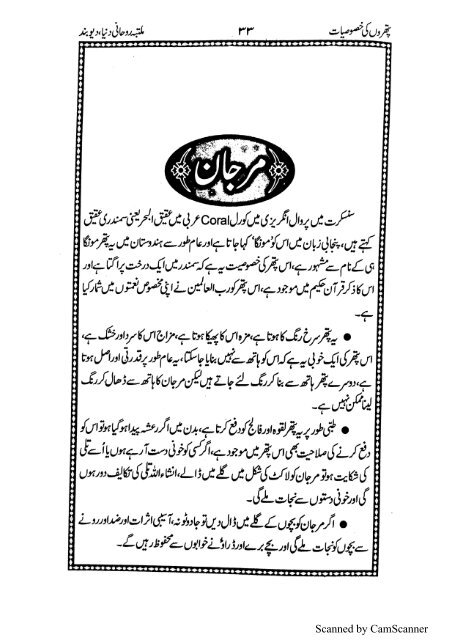 پتھروں کی خصوصیات ۳۳ مکتبہ روحانی دنیا، دیوبند
مرجان
سنسکرت میں پروال انگریزی میں کورل Coral عربی میں عقیق البحر یعنی سمندری عقیق
کہتے ہیں، پنجابی زبان میں اس کو ’مونگا‘ کہا جاتا ہے اور عام طور سے ہندوستان میں یہ پتھر مونگا
ہی کے نام سے مشہور ہے، اس پتھر کی خصوصیت یہ ہے کہ سمندر میں ایک درخت پر اگتا ہے اور
اس کا ذکر قرآن حکیم میں موجود ہے، اس پتھر کو رب العالمین نے اپنی مخصوص نعمتوں میں شمار کیا
ہے۔
● یہ پتھر سرخ رنگ کا ہوتا ہے، مزہ اس کا پھیکا ہوتا ہے، مزاج اس کا سرد اور خشک ہے،
اس پتھر کی ایک خوبی یہ ہے کہ اس کو ہاتھ سے نہیں بنایا جا سکتا، یہ عام طور پر قدرتی اور اصل ہوتا
ہے، دوسرے پتھر ہاتھ سے بنا کر رنگ لئے جاتے ہیں لیکن مرجان کا ہاتھ سے ڈھال کر رنگ
لینا ممکن نہیں ہے۔
● طبّی طور پر یہ پتھر لقوہ اور فالج کو دفع کرتا ہے، بدن میں اگر رعشہ پیدا ہو گیا ہو تو اس کو
دفع کرنے کی صلاحیت بھی اس پتھر میں موجود ہے، اگر کسی کو خونی دست آرہے ہوں یا اُسے تلی
کی شکایت ہو تو مرجان کو لاکٹ کی شکل میں گلے میں ڈالے، انشاء اللہ تلی کی تکالیف دور ہوں
گی اور خونی دستوں سے نجات ملے گی۔
● اگر مرجان کو بچوں کے گلے میں ڈال دیں تو جادو ٹونہ، آسیبی اثرات اور ضد اور رونے
سے بچوں کو نجات ملے گی اور بچے برے اور ڈراؤنے خوابوں سے محفوظ رہیں گے۔
Scanned by CamScanner